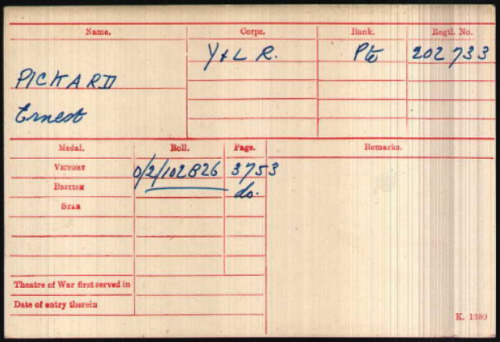 Name. Corps. Rank. Regtl. No.
Y & L R. Pte 202733
PICKARD
Ernest
Medal. Roll. Page. Remarks.
VICTORY O/2/102B26 3753
BRITISH do.
STAR
Theatre of War first served in
Date of entry therein
K. 1380